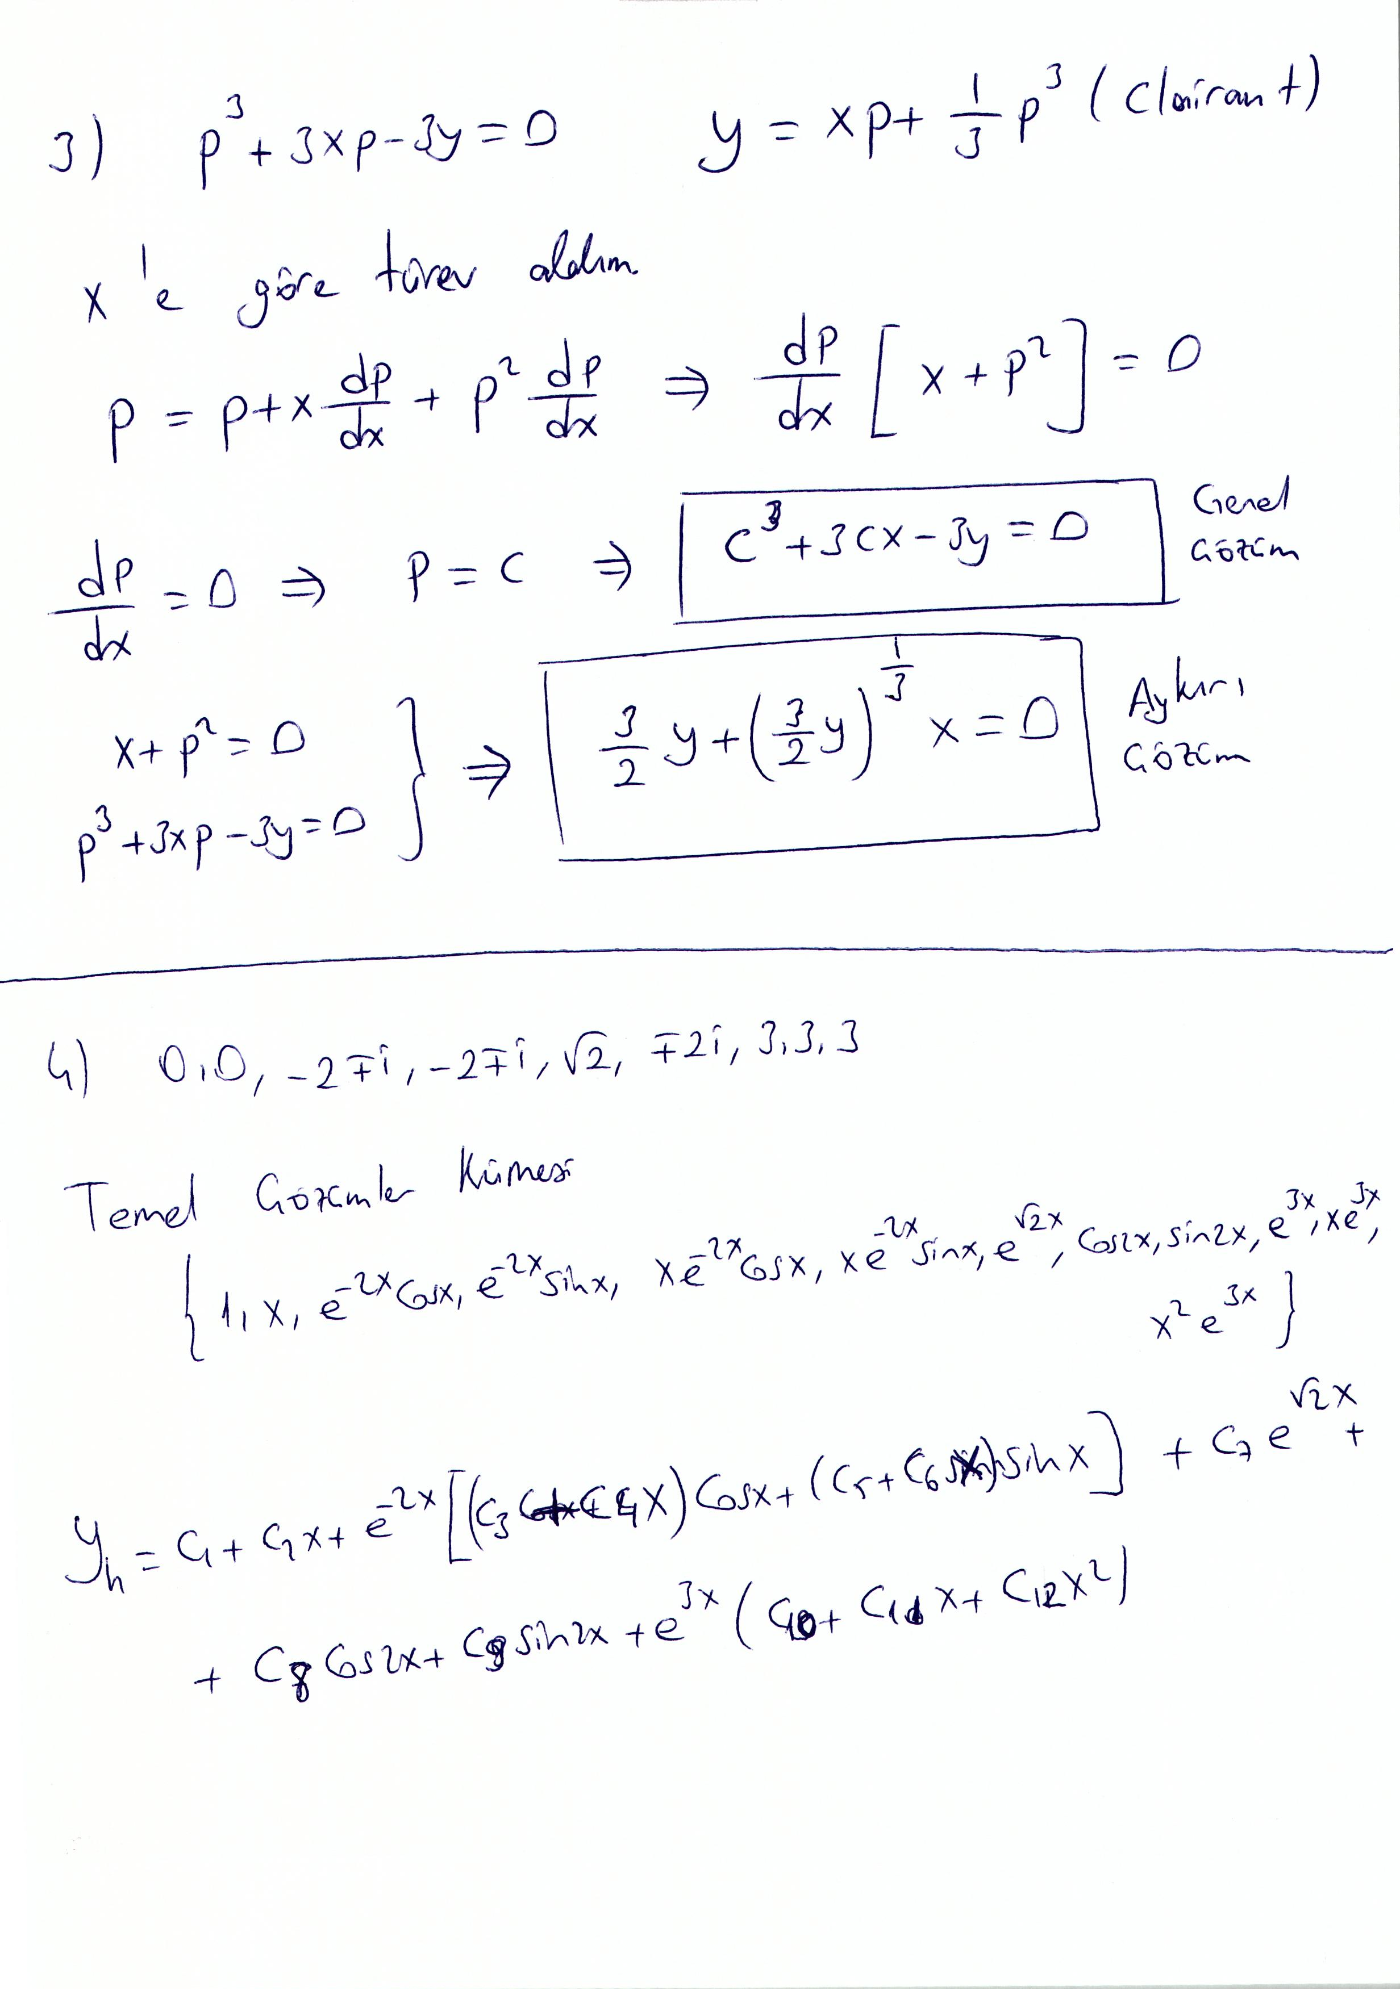 3) p³ + 3xp - 3y = 0 y = xp + 1/3 p³ (Clairaut)
x'e göre türev alalım
p = p + x dp/dx + p² dp/dx ⇒ dp/dx [x + p²] = 0
dp/dx = 0 ⇒ p = c ⇒ c³ + 3cx - 3y = 0 Genel Çözüm
x + p² = 0
p³ + 3xp - 3y = 0 } ⇒ 3/2 y + (3/2 y)^(1/3) x = 0 Aykırı Çözüm
4) 0, 0, -2∓i, -2∓i, √2, ∓2i, 3, 3, 3
Temel Çözümler Kümesi
{1, x, e^(-2x) Cosx, e^(-2x) sinx, xe^(-2x) Cosx, xe^(-2x) sinx, e^(√2x), Cos2x, sin2x, e^(3x), xe^(3x),
x² e^(3x)}
y_h = C₁ + C₂x + e^(-2x) [(C₃ + C₄x) Cosx + (C₅ + C₆x) sinx] + C₇ e^(√2x) +
+ C₈ Cos2x + C₉ sin2x + e^(3x) (C₁₀ + C₁₁x + C₁₂x²)